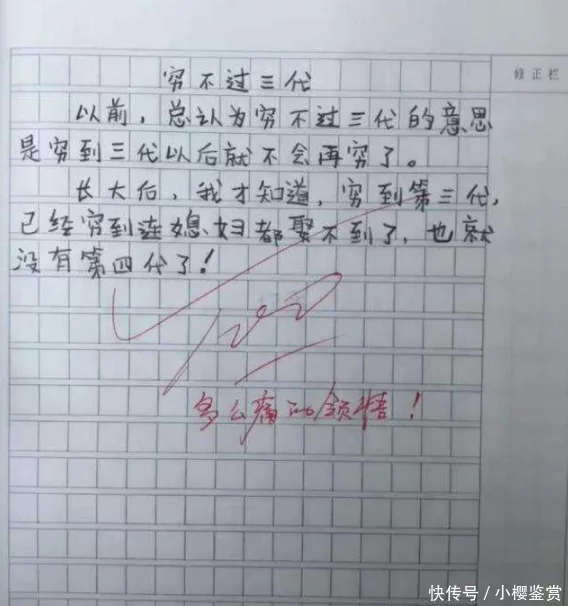 修正栏
穷不过三代
以前，总认为穷不过三代的意思
是穷到三代以后就不会再穷了。
长大后，我才知道，穷到第三代，
已经穷到连媳妇都娶不到了，也就
没有第四代了！
100
多么痛的领悟！
快传号／小樱鉴赏